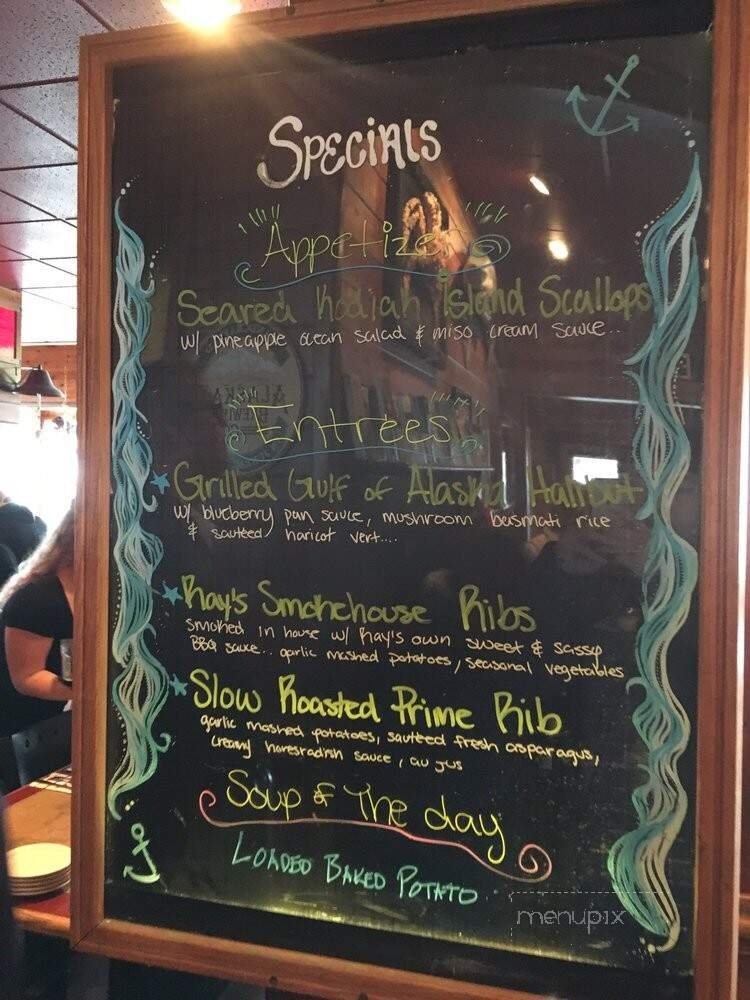 Specials
Appetizer
Seared Kodiak Island Scallops
w/ pineapple ocean salad & miso cream sauce...
Entrees
Grilled Gulf of Alaska Halibut
w/ blueberry pan sauce, mushroom basmati rice
& sautéed haricot vert....
Ray's Smokehouse Ribs
smoked in house w/ Ray's own sweet & sassy
BBQ sauce... garlic mashed potatoes, seasonal vegetables
Slow Roasted Prime Rib
garlic mashed potatoes, sautéed fresh asparagus,
creamy horesradish sauce, au jus
Soup of The day
LOADED BAKED POTATO
menupix